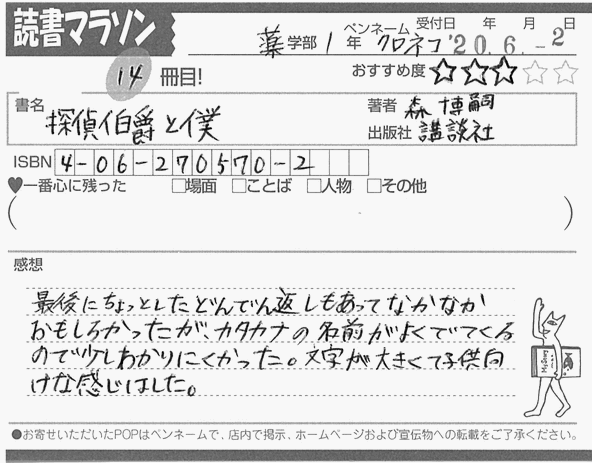 読書マラソン
ペンネーム 受付日 年 月 日
薬学部1年 クロネコ '20.6.-2
14冊目!
おすすめ度 ☆☆☆☆☆
書名 探偵伯爵と僕
著者 森 博嗣
出版社 講談社
ISBN 4-06-270570-2
♥一番心に残った □場面 □ことば □人物 □その他
( )
感想
最後にちょっとしたどんでん返しもあってなかなか
おもしろかったが、カタカナの名前がよくでてくる
ので少しわかりにくかった。文字が大きくて子供向
けな感じはした。
●お寄せいただいたPOPはペンネームで、店内で掲示、ホームページおよび宣伝物への転載をご了承ください。